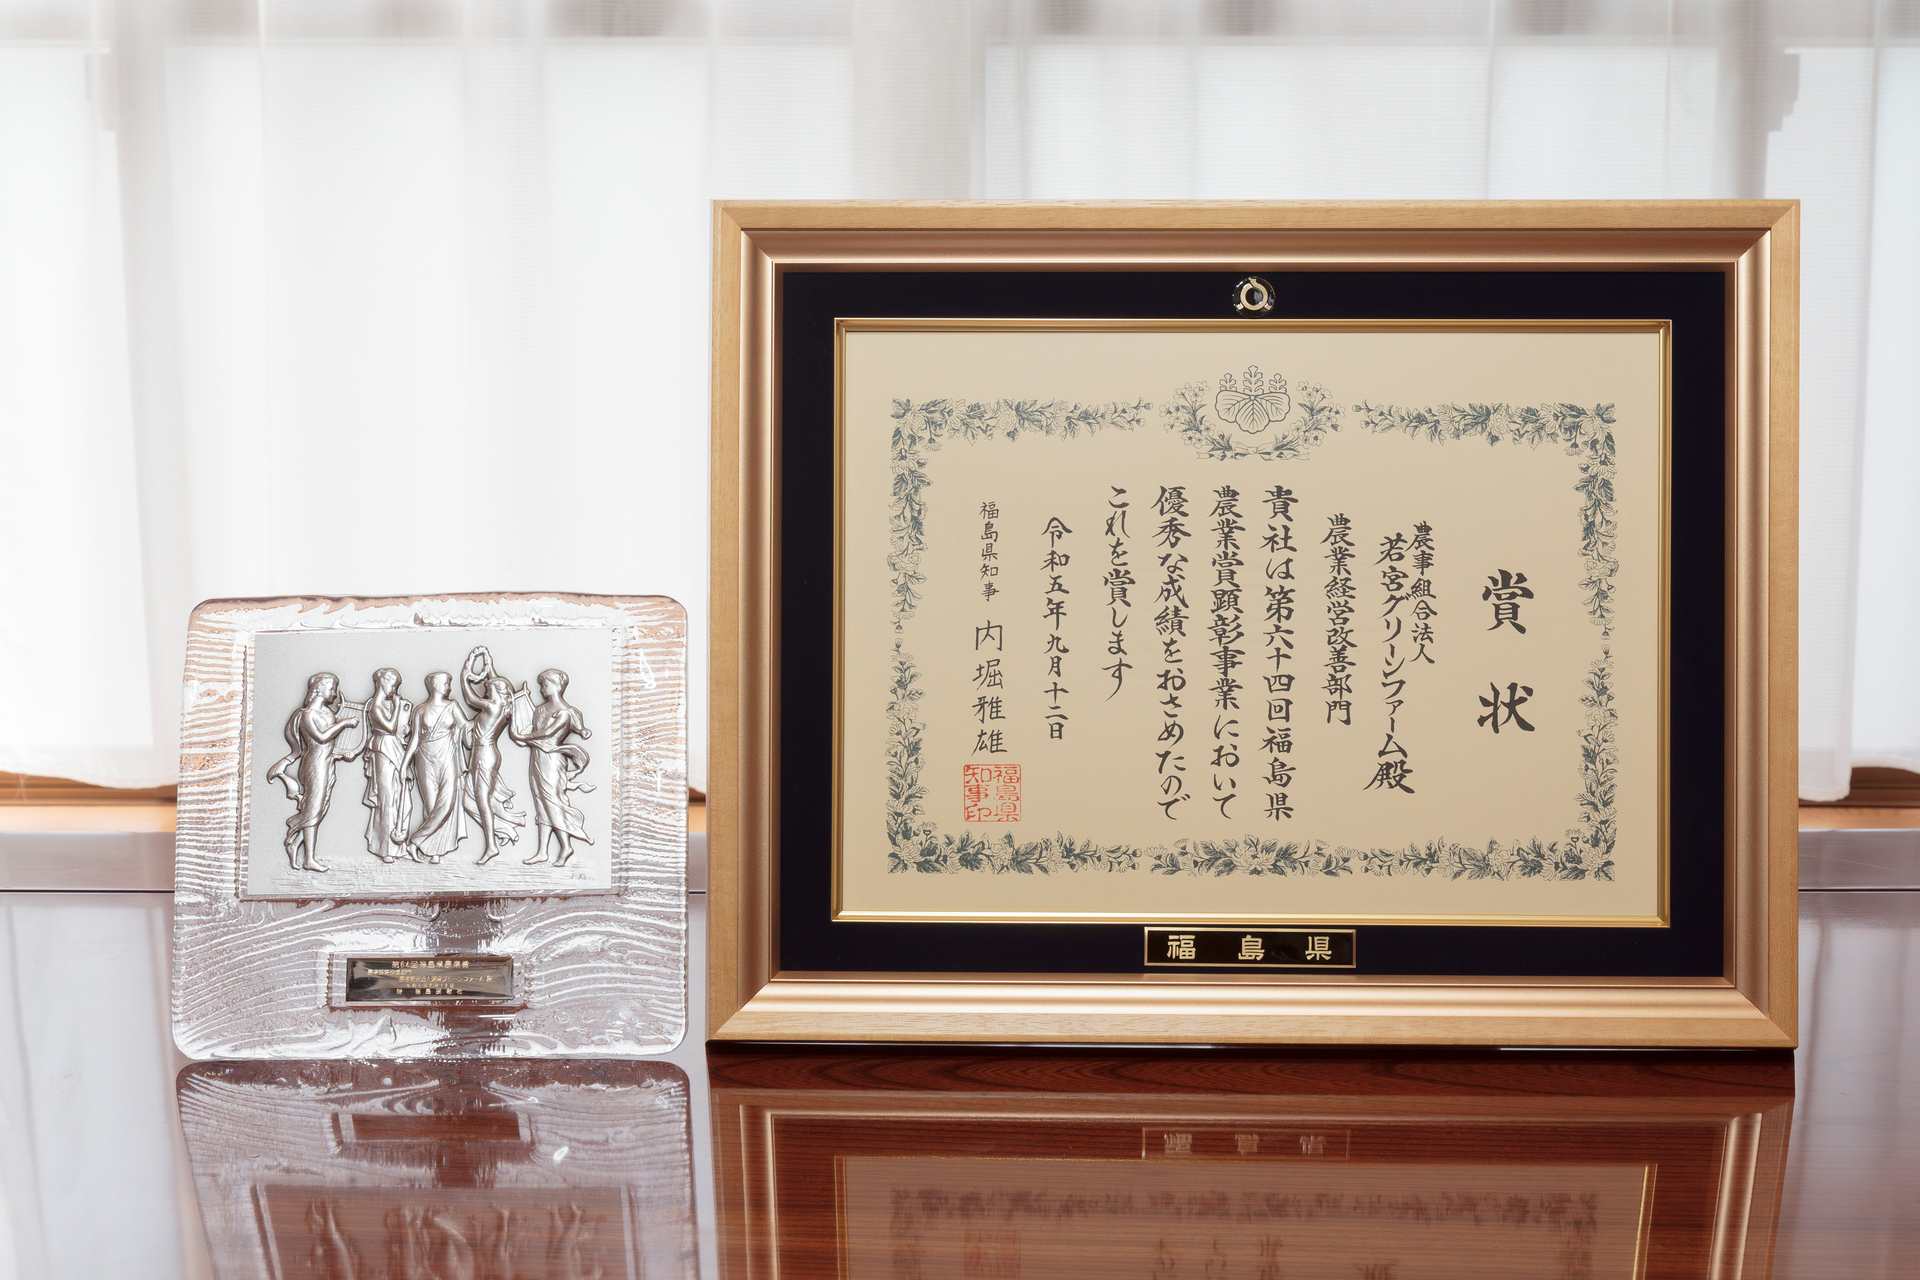 賞状
農事組合法人
若宮グリーンファーム殿
農業経営改善部門
貴社は第六十四回福島県
農業賞顕彰事業において
優秀な成績をおさめたので
これを賞します
令和五年九月十二日
福島県知事 内堀雅雄
福島県
知事印
福島県
第64回福島県農業賞